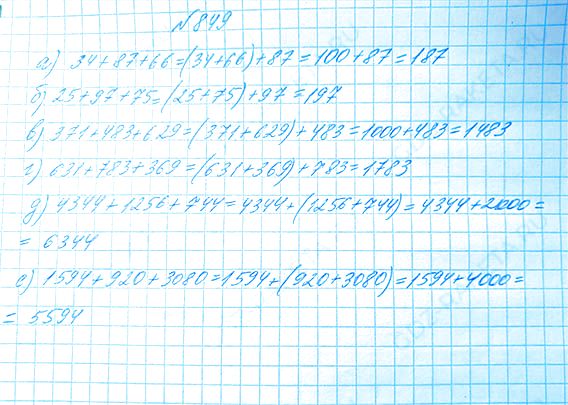 №849
а) 34+87+66=(34+66)+87=100+87=187
б) 25+97+75=(25+75)+97=197
в) 371+483+629=(371+629)+483=1000+483=1483
г) 631+783+369=(631+369)+783=1783
д) 4344+1256+744=4344+(1256+744)=4344+2000=
= 6344
е) 1594+920+3080=1594+(920+3080)=1594+4000=
= 5594